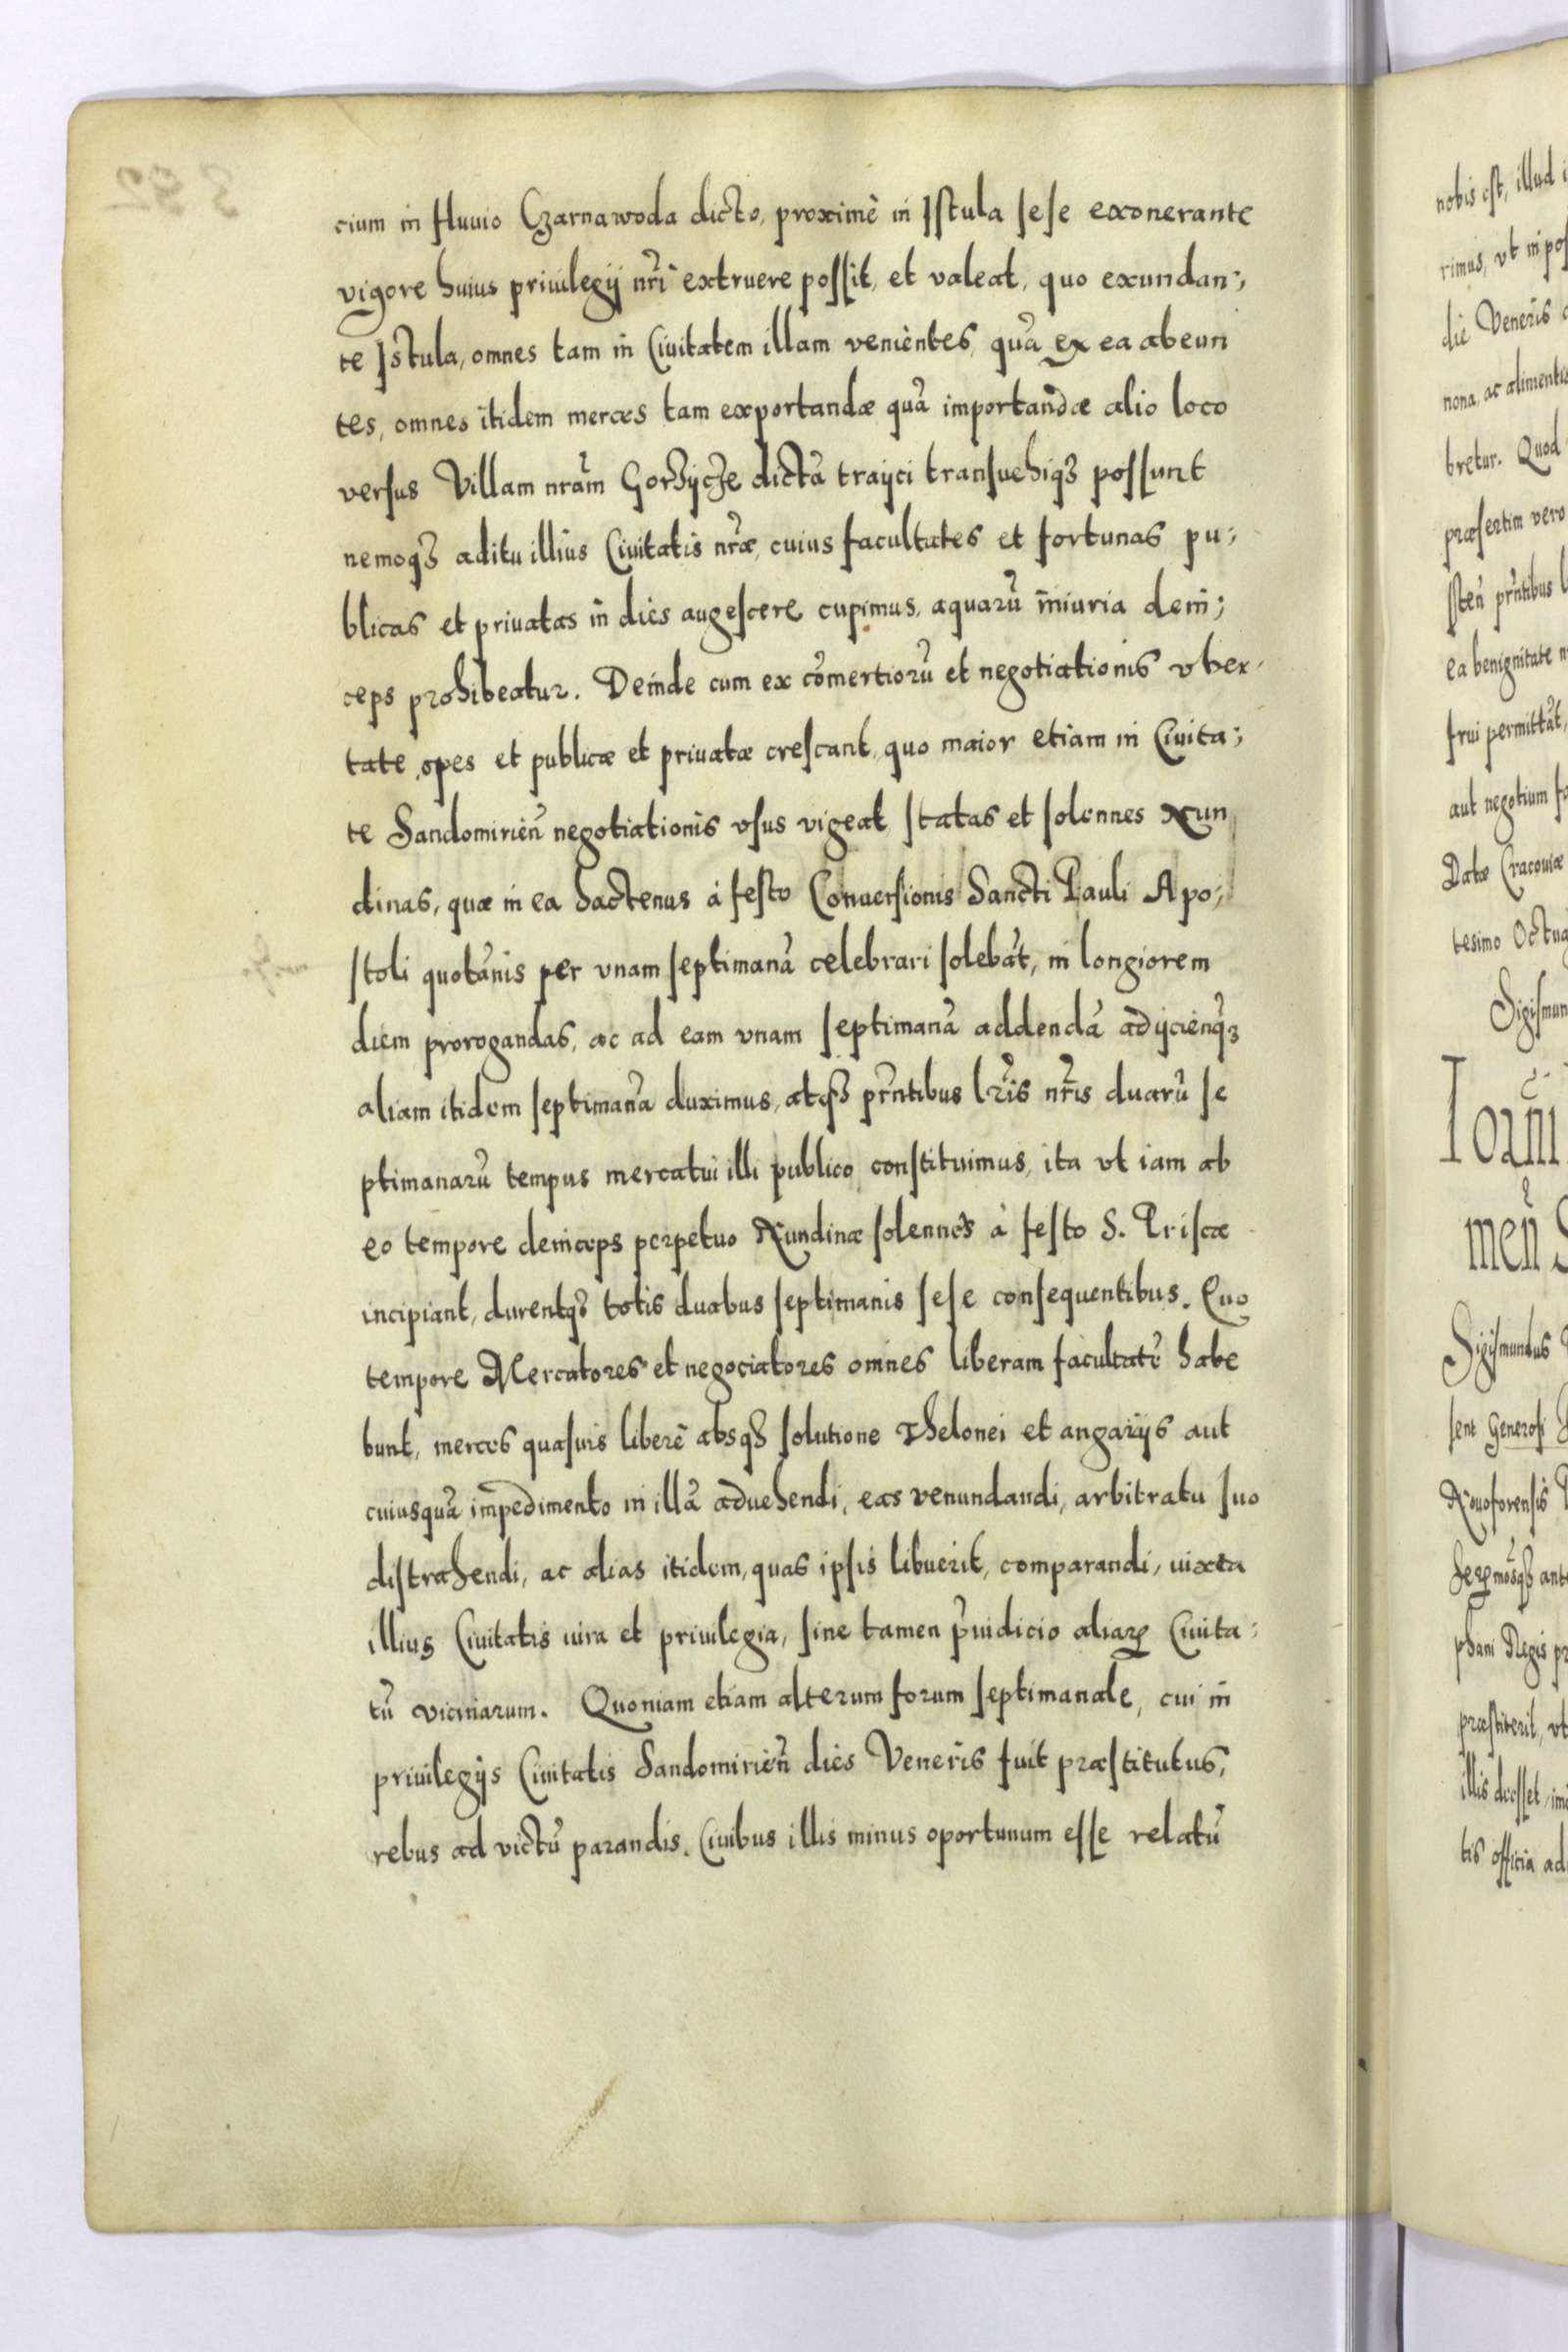 cium in fluuio Czarnawoda dicto, proximè in Istula sese exonerante
vigore huius priuilegij nr̃i extruere possit, et valeat, quo exundan;
te Istula, omnes tam in Ciuitatem illam venientes, quã ex ea abeun
tes, omnes itidem merces tam exportandæ quã importandæ alio loco
versus Villam nrãm Gorzycze dictã traijci transuehiqȝ possunt
nemoqȝ aditu illius Ciuitatis nr̃æ, cuius facultates et fortunas pu;
blicas et priuatas in dies augescere cupimus, aquarũ iniuria dein;
ceps prohibeatur. Deinde cum ex cõmertiorũ et negotiationis vber-
tate, opes et publicæ et priuatæ crescant, quo maior etiam in Ciuita;
te Sandomirieñ negotiationis vsus vigeat, statas et solennes Nun
dinas, quæ in ea hactenus à festo Conuersionis Sancti Pauli Apo;
stoli quotãnis per vnam septimanã celebrari solebãt, in longiorem
diem prorogandas, ac ad eam vnam septimanã addendã adijcienqȝ
aliam itidem septimanã duximus, atqȝ pr̃ntibus lr̃is nr̃is duarũ se
ptimanarũ tempus mercatui illi publico constituimus, ita vt iam ab
eo tempore deinceps perpetuo Nundinæ solennes à festo S. Priscæ
incipiant, durentqȝ totis duabus septimanis sese consequentibus. Quo
tempore Mercatores et negociatores omnes liberam facultatẽ habe
bunt, merces quasuis liberè absqȝ solutione Thelonei et angarijs aut
cuiusquã impedimento in illã aduehendi, eas venundandi, arbitratu suo
distrahendi, ac alias itidem, quas ipsis libuerit, comparandi, iuxta
illius Ciuitatis iura et priuilegia, sine tamen p̃iudicio aliaꝝ Ciuita;
tũ vicinarum. Quoniam etiam alterum forum septimanale, cui in
priuilegijs Ciuitatis Sandomirieñ dies Veneris fuit præstitutus,
rebus ad victũ parandis. Ciuibus illis minus oportunum esse relatũ
nobis est, illud
rimus, vt in
die Veneris
nona, ac alimentis
bretur. Quod
præsertim vero
steñ pr̃ntibus
ea benignitate
frui permittãt,
aut negotium
Datæ Cracouiæ
tesimo
Ioañi
meñ
Sigismundus
sent Generosi
Nouoforensis
ante
phani Regis
præstiterit, vt
illis deesset,
tis officia ad